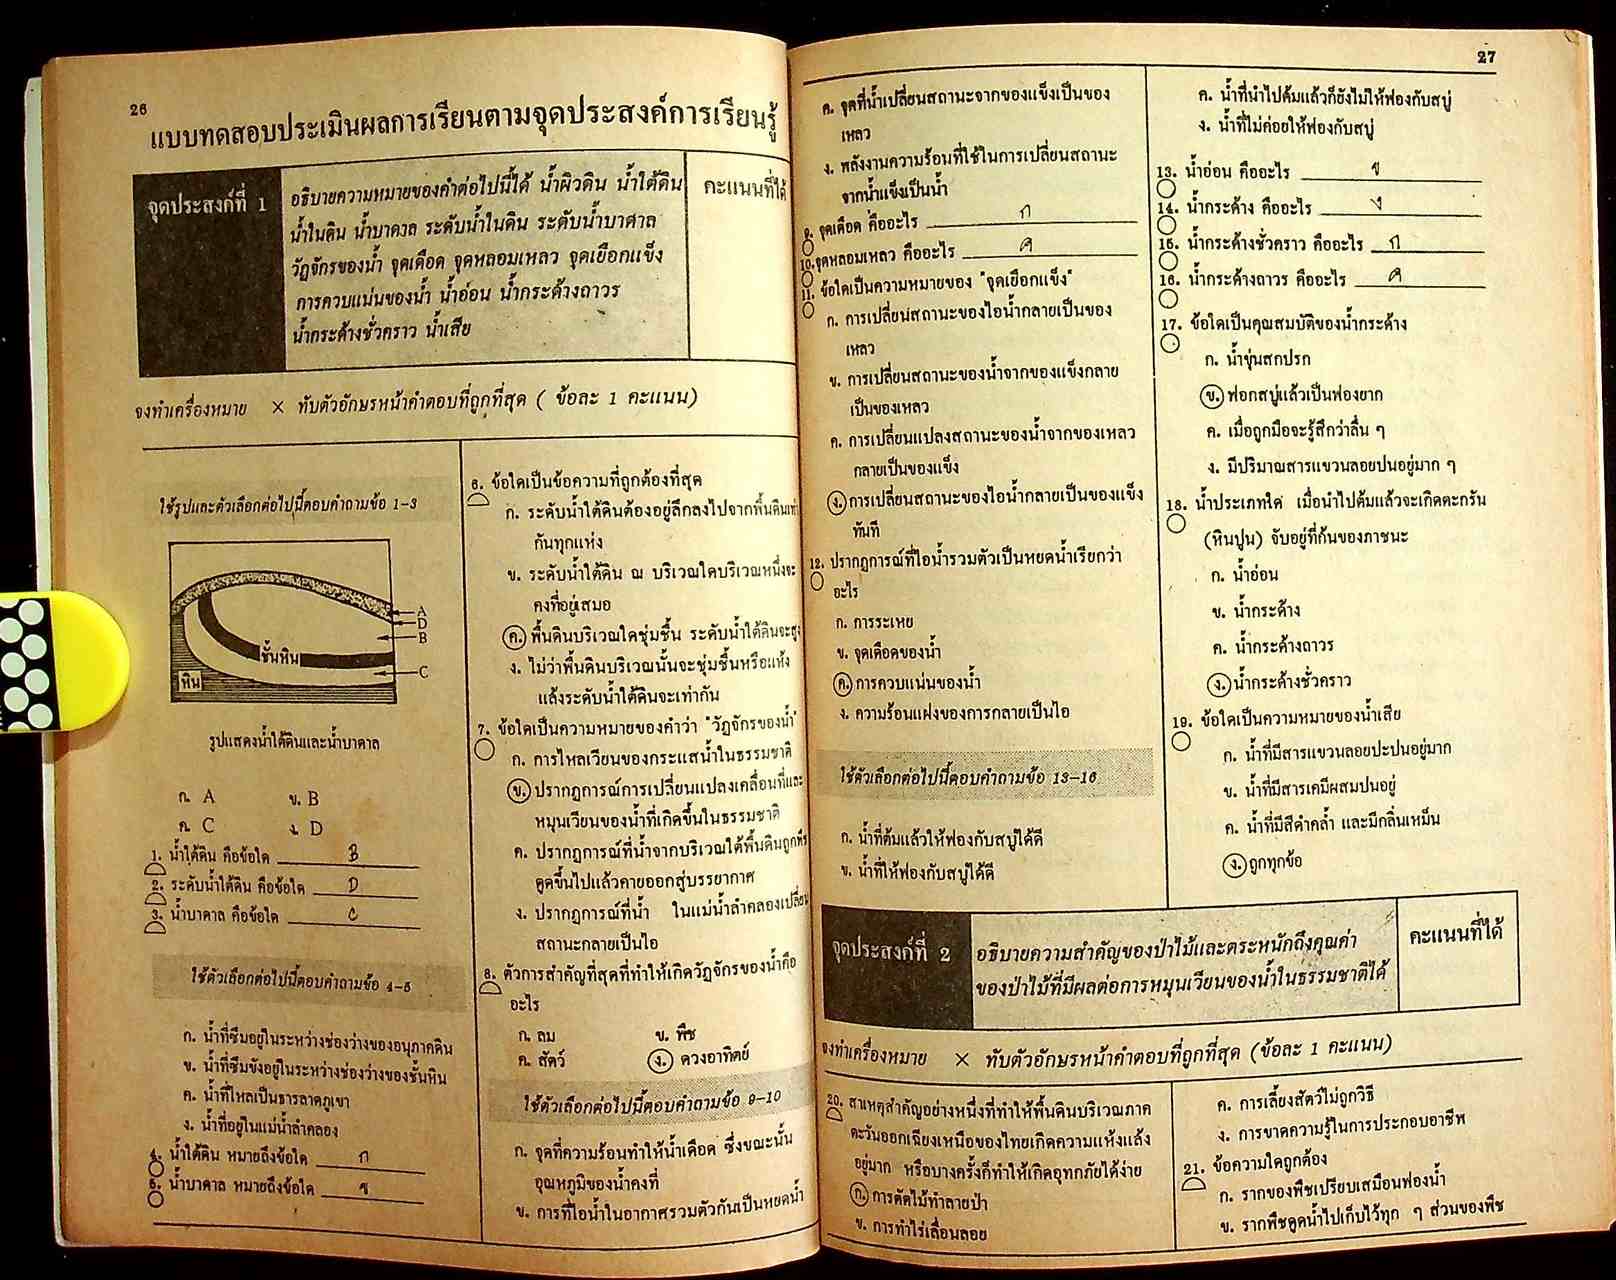 26
แบบทดสอบประเมินผลการเรียนตามจุดประสงค์การเรียนรู้
จุดประสงค์ที่ 1
อธิบายความหมายของคำต่อไปนี้ได้ น้ำผิวดิน น้ำใต้ดิน
น้ำในดิน น้ำบาดาล ระดับน้ำในดิน ระดับน้ำบาดาล
วัฏจักรของน้ำ จุดเดือด จุดหลอมเหลว จุดเยือกแข็ง
การควบแน่นของน้ำ น้ำอ่อน น้ำกระด้างถาวร
น้ำกระด้างชั่วคราว น้ำเสีย
คะแนนที่ได้
จงทำเครื่องหมาย × ทับตัวอักษรหน้าคำตอบที่ถูกที่สุด ( ข้อละ 1 คะแนน)
ใช้รูปและตัวเลือกต่อไปนี้ตอบคำถามข้อ 1-3
A
D
B
ชั้นหิน
C
หิน
รูปแสดงน้ำใต้ดินและน้ำบาดาล
ก. A ข. B
ค. C ง. D
1. น้ำใต้ดิน คือข้อใด B
2. ระดับน้ำใต้ดิน คือข้อใด D
3. น้ำบาดาล คือข้อใด C
ใช้ตัวเลือกต่อไปนี้ตอบคำถามข้อ 4-5
ก. น้ำที่ซึมอยู่ในระหว่างช่องว่างของอนุภาคดิน
ข. น้ำที่ซึมขังอยู่ในระหว่างช่องว่างของชั้นหิน
ค. น้ำที่ไหลเป็นธารลาดภูเขา
ง. น้ำที่อยู่ในแม่น้ำลำคลอง
4. น้ำใต้ดิน หมายถึงข้อใด ก
5. น้ำบาดาล หมายถึงข้อใด ข
6. ข้อใดเป็นข้อความที่ถูกต้องที่สุด
ก. ระดับน้ำใต้ดินต้องอยู่ลึกลงไปจากพื้นดินเท่า
กันทุกแห่ง
ข. ระดับน้ำใต้ดิน ณ บริเวณใดบริเวณหนึ่งจะ
คงที่อยู่เสมอ
ค. พื้นดินบริเวณใดชุ่มชื้น ระดับน้ำใต้ดินจะสูง
ง. ไม่ว่าพื้นดินบริเวณนั้นจะชุ่มชื้นหรือแห้ง
แล้งระดับน้ำใต้ดินจะเท่ากัน
7. ข้อใดเป็นความหมายของคำว่า "วัฏจักรของน้ำ"
ก. การไหลเวียนของกระแสน้ำในธรรมชาติ
ข. ปรากฏการณ์การเปลี่ยนแปลงเคลื่อนที่และ
หมุนเวียนของน้ำที่เกิดขึ้นในธรรมชาติ
ค. ปรากฏการณ์ที่น้ำจากบริเวณใต้พื้นดินถูกพืช
ดูดขึ้นไปแล้วคายออกสู่บรรยากาศ
ง. ปรากฏการณ์ที่น้ำ ในแม่น้ำลำคลองเปลี่ยน
สถานะกลายเป็นไอ
8. ตัวการสำคัญที่สุดที่ทำให้เกิดวัฏจักรของน้ำคือ
อะไร
ก. ลม ข. พืช
ค. สัตว์ ง. ดวงอาทิตย์
ใช้ตัวเลือกต่อไปนี้ตอบคำถามข้อ 9-10
ก. จุดที่ความร้อนทำให้น้ำเดือด ซึ่งขณะนั้น
อุณหภูมิของน้ำคงที่
ข. การที่ไอน้ำในอากาศรวมตัวกันเป็นหยดน้ำ
27
ค. จุดที่น้ำเปลี่ยนสถานะจากของแข็งเป็นของ
เหลว
ง. พลังงานความร้อนที่ใช้ในการเปลี่ยนสถานะ
จากน้ำแข็งเป็นน้ำ
9. จุดเดือด คืออะไร ก
10. จุดหลอมเหลว คืออะไร ค
11. ข้อใดเป็นความหมายของ "จุดเยือกแข็ง"
ก. การเปลี่ยนสถานะของไอน้ำกลายเป็นของ
เหลว
ข. การเปลี่ยนสถานะของน้ำจากของแข็งกลาย
เป็นของเหลว
ค. การเปลี่ยนแปลงสถานะของน้ำจากของเหลว
กลายเป็นของแข็ง
ง. การเปลี่ยนสถานะของไอน้ำกลายเป็นของแข็ง
ทันที
12. ปรากฏการณ์ที่ไอน้ำรวมตัวเป็นหยดน้ำเรียกว่า
อะไร
ก. การระเหย
ข. จุดเดือดของน้ำ
ค. การควบแน่นของน้ำ
ง. ความร้อนแฝงของการกลายเป็นไอ
ใช้ตัวเลือกต่อไปนี้ตอบคำถามข้อ 13-16
ก. น้ำที่ต้มแล้วให้ฟองกับสบู่ได้ดี
ข. น้ำที่ให้ฟองกับสบู่ได้ดี
ค. น้ำที่นำไปต้มแล้วก็ยังไม่ให้ฟองกับสบู่
ง. น้ำที่ไม่ค่อยให้ฟองกับสบู่
13. น้ำอ่อน คืออะไร ข
14. น้ำกระด้าง คืออะไร ง
15. น้ำกระด้างชั่วคราว คืออะไร ก
16. น้ำกระด้างถาวร คืออะไร ค
17. ข้อใดเป็นคุณสมบัติของน้ำกระด้าง
ก. น้ำขุ่นสกปรก
ข. ฟอกสบู่แล้วเป็นฟองยาก
ค. เมื่อถูกมือจะรู้สึกว่าลื่น ๆ
ง. มีปริมาณสารแขวนลอยปนอยู่มาก ๆ
18. น้ำประเภทใด เมื่อนำไปต้มแล้วจะเกิดตะกรัน
(หินปูน) จับอยู่ที่ก้นของภาชนะ
ก. น้ำอ่อน
ข. น้ำกระด้าง
ค. น้ำกระด้างถาวร
ง. น้ำกระด้างชั่วคราว
19. ข้อใดเป็นความหมายของน้ำเสีย
ก. น้ำที่มีสารแขวนลอยปะปนอยู่มาก
ข. น้ำที่มีสารเคมีผสมปนอยู่
ค. น้ำที่มีสีดำคล้ำ และมีกลิ่นเหม็น
ง. ถูกทุกข้อ
จุดประสงค์ที่ 2
อธิบายความสำคัญของป่าไม้และตระหนักถึงคุณค่า
ของป่าไม้ที่มีผลต่อการหมุนเวียนของน้ำในธรรมชาติได้
คะแนนที่ได้
จงทำเครื่องหมาย × ทับตัวอักษรหน้าคำตอบที่ถูกที่สุด (ข้อละ 1 คะแนน)
20. สาเหตุสำคัญอย่างหนึ่งที่ทำให้พื้นดินบริเวณภาค
ตะวันออกเฉียงเหนือของไทยเกิดความแห้งแล้ง
อยู่มาก หรือบางครั้งก็ทำให้เกิดอุทกภัยได้ง่าย
ก. การตัดไม้ทำลายป่า
ข. การทำไร่เลื่อนลอย
ค. การเลี้ยงสัตว์ไม่ถูกวิธี
ง. การขาดความรู้ในการประกอบอาชีพ
21. ข้อความใดถูกต้อง
ก. รากของพืชเปรียบเสมือนฟองน้ำ
ข. รากพืชดูดน้ำไปเก็บไว้ทุก ๆ ส่วนของพืช